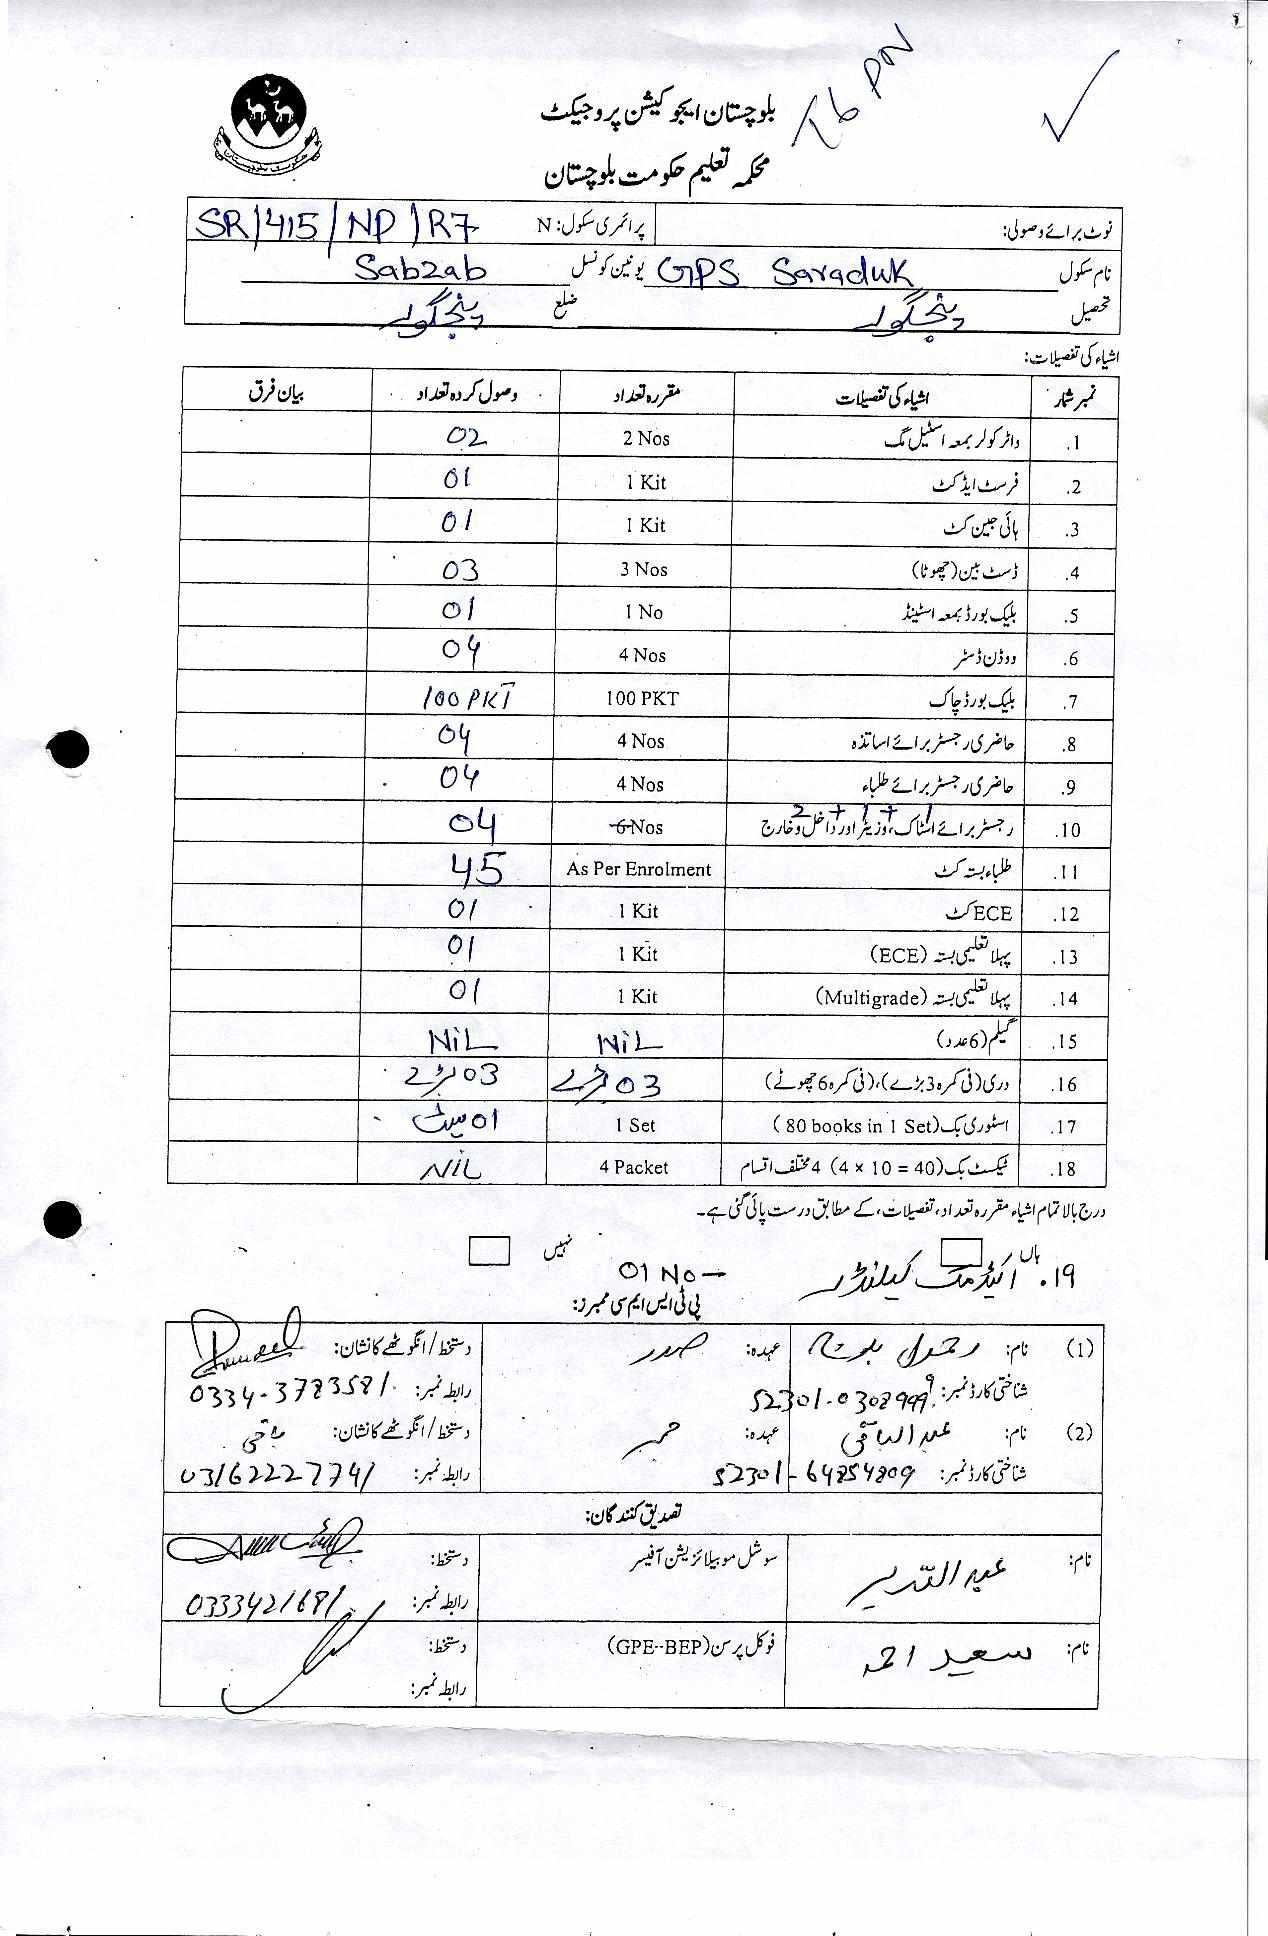 76 PN
بلوچستان ایجوکیشن پروجیکٹ
محکمہ تعلیم حکومت بلوچستان
نوٹ برائے وصولی: پرائمری سکول: N SR/415/NP/R7
نام سکول GPS Saraduk یونین کونسل Sabzab
تحصیل پنجگور ضلع پنجگور
اشیاء کی تفصیلات:
نمبر شمار اشیاء کی تفصیلات مقررہ تعداد وصول کردہ تعداد بیان فرق
1. واٹر کولر بمعہ اسٹیل مگ 2 Nos 02
2. فرسٹ ایڈ کٹ 1 Kit 01
3. ہائی جین کٹ 1 Kit 01
4. ڈسٹ بین (چھوٹا) 3 Nos 03
5. بلیک بورڈ بمعہ اسٹینڈ 1 No 01
6. ووڈن ڈسٹر 4 Nos 04
7. بلیک بورڈ چاک 100 PKT 100 PKT
8. حاضری رجسٹر برائے اساتذہ 4 Nos 04
9. حاضری رجسٹر برائے طلباء 4 Nos 04
2 + 1 + 1
10. رجسٹر برائے اسٹاک، وزیٹر اور داخل و خارج 6 Nos 04
11. طلباء بستہ کٹ As Per Enrolment 45
12. ECE کٹ 1 Kit 01
13. پہلا تعلیمی بستہ (ECE) 1 Kit 01
14. پہلا تعلیمی بستہ (Multigrade) 1 Kit 01
15. گیلم (6 عدد) NiL NiL
16. دری (فی کمرہ 3 بڑے)، (فی کمرہ 6 چھوٹے) 03 بڑے 03 بڑے
17. اسٹوری بک (80 books in 1 Set) 1 Set 01 سیٹ
18. ٹیکسٹ بک (4 × 10 = 40) 4 مختلف اقسام 4 Packet NiL
درج بالا تمام اشیاء مقررہ تعداد، تفصیلات، کے مطابق درست پائی گئی ہے۔
ہاں نہیں
۱۹. اکیڈمک کیلنڈر 01 No
پی ٹی ایس ایم سی ممبرز:
(1) نام: عہدہ: صدر دستخط/انگوٹھے کا نشان:
شناختی کارڈ نمبر: رابطہ نمبر: 0334-3783581
(2) نام: عبدالباقی عہدہ: ممبر دستخط/انگوٹھے کا نشان: باقی
شناختی کارڈ نمبر: 52301-64854809 رابطہ نمبر: 03162227741
تصدیق کنندگان:
نام: سوشل موبیلائزیشن آفیسر دستخط:
رابطہ نمبر: 0333421681
نام: سعید احمد فوکل پرسن (GPE--BEP) دستخط:
رابطہ نمبر: